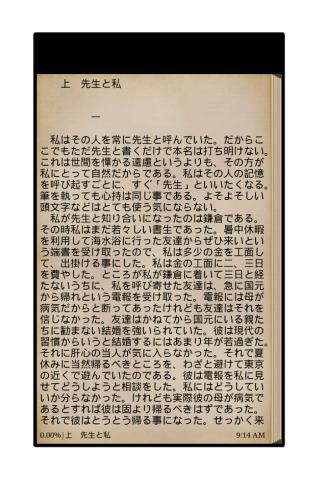 上　先生と私
一
　私はその人を常に先生と呼んでいた。だからこ
こでもただ先生と書くだけで本名は打ち明けない。
これは世間を憚かる遠慮というよりも、その方が
私にとって自然だからである。私はその人の記憶
を呼び起すごとに、すぐ「先生」といいたくなる。
筆を執っても心持は同じ事である。よそよそしい
頭文字などはとても使う気にならない。
　私が先生と知り合いになったのは鎌倉である。
その時私はまだ若々しい書生であった。暑中休暇
を利用して海水浴に行った友達からぜひ来いとい
う端書を受け取ったので、私は多少の金を工面し
て、出掛ける事にした。私は金の工面に二、三日
を費やした。ところが私が鎌倉に着いて三日と経
たないうちに、私を呼び寄せた友達は、急に国元
から帰れという電報を受け取った。電報には母が
病気だからと断ってあったけれども友達はそれを
信じなかった。友達はかねてから国元にいる親た
ちに勧まない結婚を強いられていた。彼は現代の
習慣からいうと結婚するにはあまり年が若過ぎた。
それに肝心の当人が気に入らなかった。それで夏
休みに当然帰るべきところを、わざと避けて東京
の近くで遊んでいたのである。彼は電報を私に見
せてどうしようと相談をした。私にはどうしてい
いか分らなかった。けれども実際彼の母が病気で
あるとすれば彼は固より帰るべきはずであった。
それで彼はとうとう帰る事になった。せっかく来
0.00% | 上　先生と私 9:14 AM